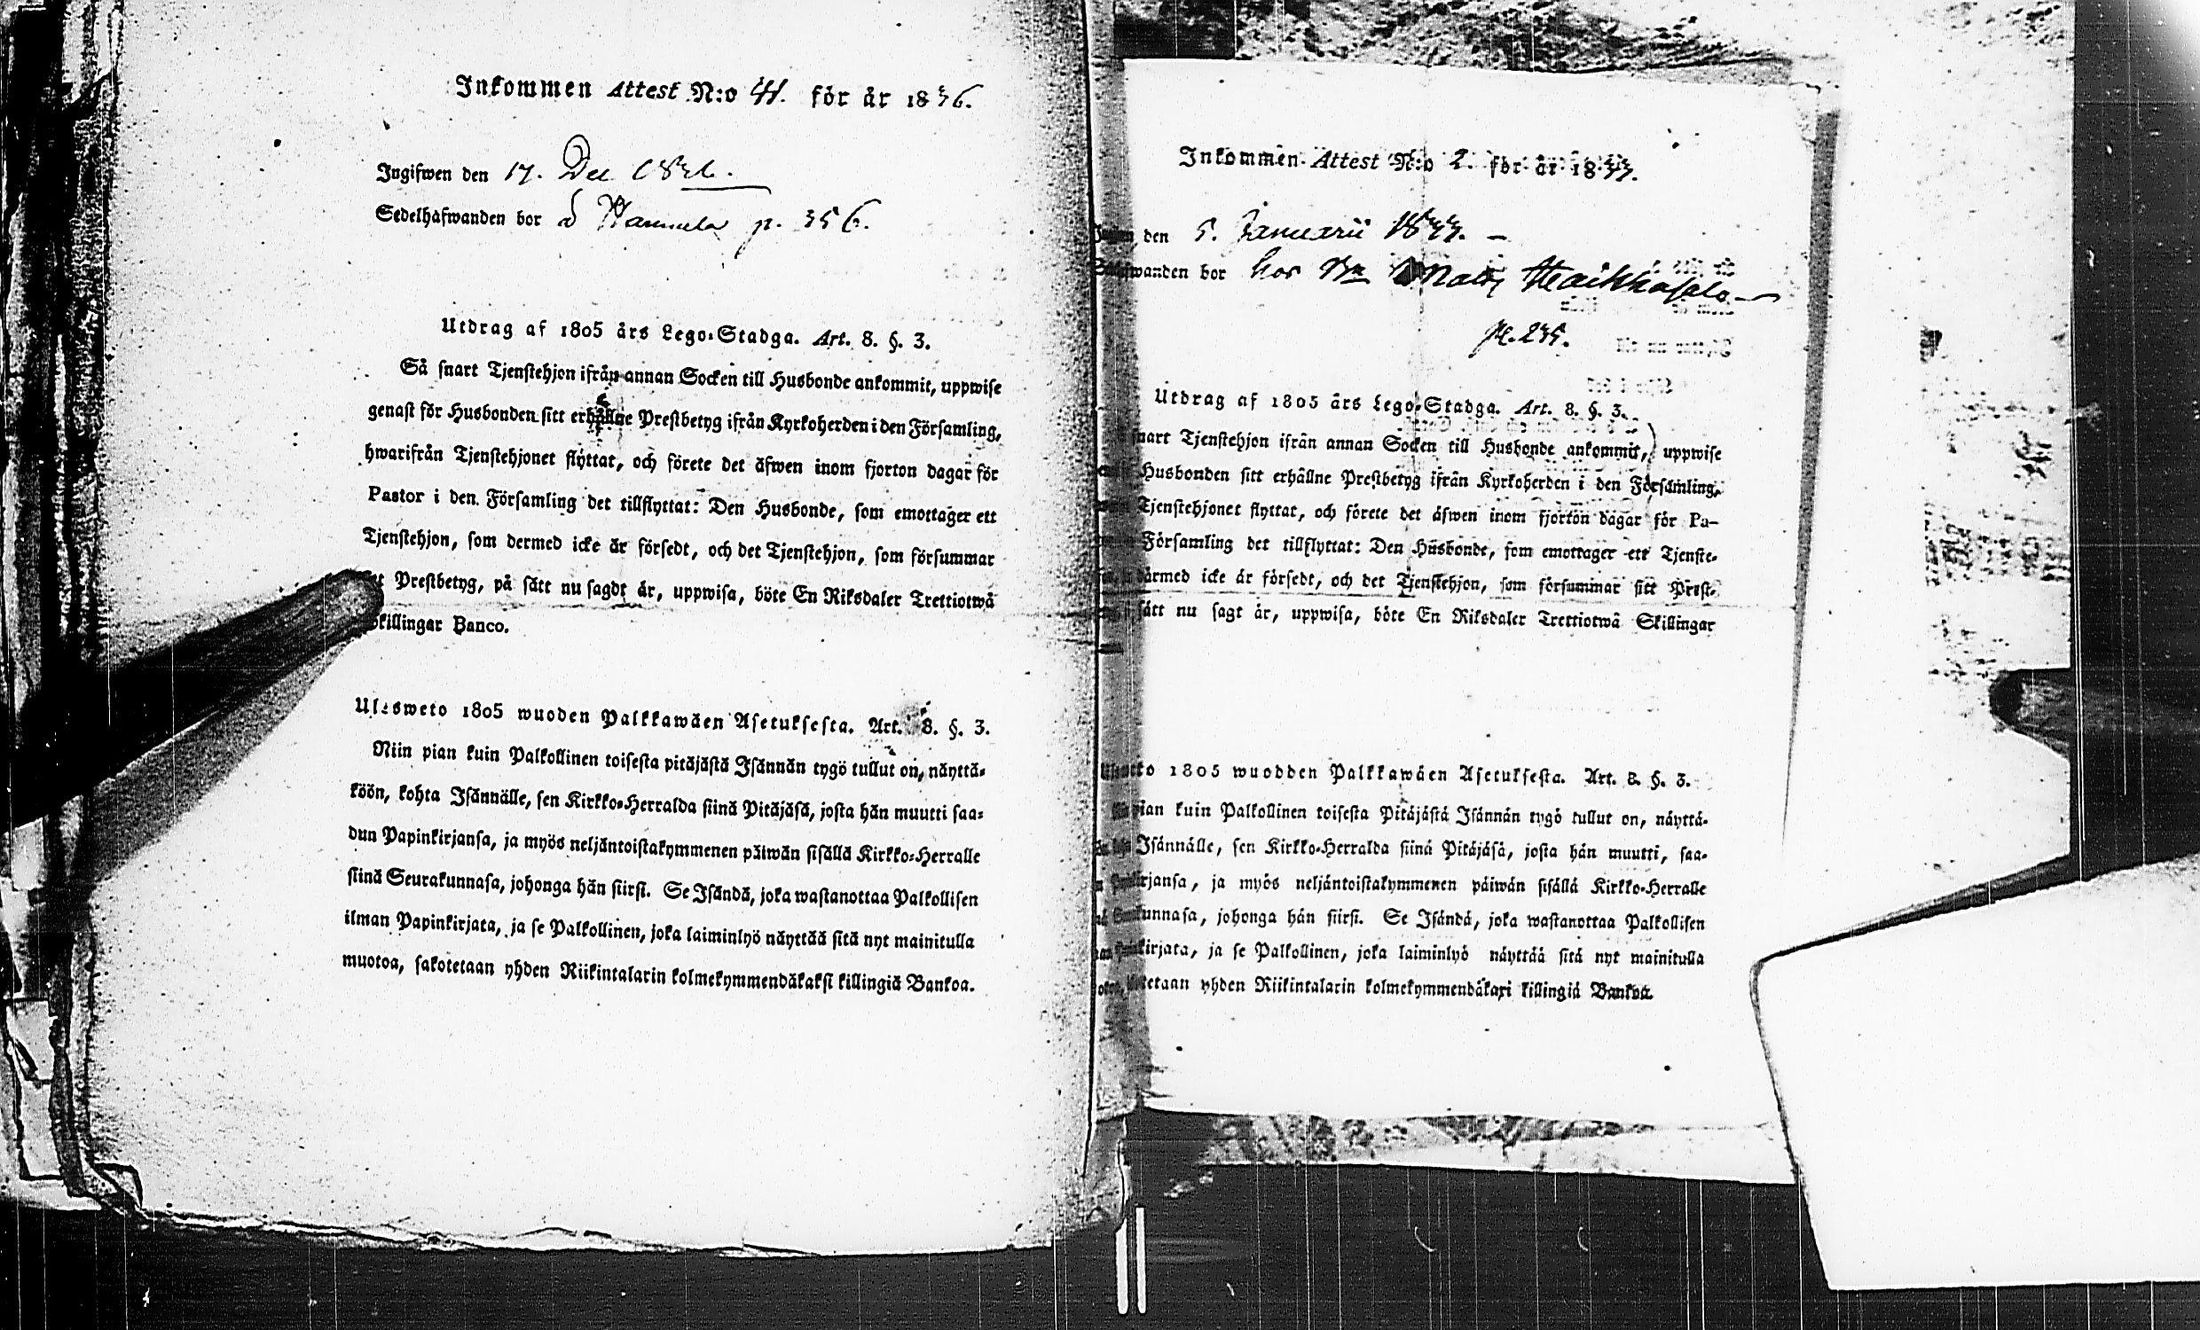 Inkommen Attest N:o 41. för år 1836.
Ingifwen den 17. Dec 1836.
Sedelhafwanden bor å Hannula p. 356.
Utdrag af 1805 års Lego-Stadga. Art. 8. §. 3.
Så snart Tjenstehjon ifrån annan Socken till Husbonde ankommit, uppwise
genast för Husbonden sitt erhållne Prestbetyg ifrån Kyrkoherden i den Församling,
hwarifrån Tjenstehjonet flyttat, och förete det äfwen inom fjorton dagar för
Pastor i den Församling det tillflyttat: Den Husbonde, som emottager ett
Tjenstehjon, som dermed icke är försedt, och det Tjenstehjon, som försummar
Prestbetyg, på sätt nu sagdt är, uppwisa, böte En Riksdaler Trettiotwå
Skillingar Banco.
Ulosweto 1805 wuoden Palkkawäen Asetuksesta. Art. 8. §. 3.
Niin pian kuin Palkollinen toisesta pitäjästä Isännän tygö tullut on, näyttä-
köön, kohta Isännälle, sen Kirkko-Herralda siinä Pitäjäsä, josta hän muutti saa-
dun Papinkirjansa, ja myös neljäntoistakymmenen päiwän sisällä Kirkko-Herralle
siinä Seurakunnasa, johonga hän siirsi. Se Isändä, joka wastanottaa Palkollisen
ilman Papinkirjata, ja se Palkollinen, joka laiminlyö näyttää sitä nyt mainitulla
muotoa, sakotetaan yhden Riikintalarin kolmekymmendäkaksi killingiä Bankoa.
Inkommen Attest N:o 2. för år 1837.
den 5. Januarii 1837.
bor hos Bn Matts Haikkasalo
p. 235.
Utdrag af 1805 års Lego-Stadga. Art. 8. §. 3.
snart Tjenstehjon ifrån annan Socken till Husbonde ankommit, uppwise
Husbonden sitt erhållne Prestbetyg ifrån Kyrkoherden i den Församling,
Tjenstehjonet flyttat, och förete det äfwen inom fjorton dagar för Pa-
Församling det tillflyttat: Den Husbonde, som emottager ett Tjenste-
därmed icke är försedt, och det Tjenstehjon, som försummar sitt Prest-
sätt nu sagt är, uppwisa, böte En Riksdaler Trettiotwå Skillingar
1805 wuodden Palkkawäen Asetuksesta. Art. 8. §. 3.
pian kuin Palkollinen toisesta Pitäjästä Isännän tygö tullut on, näyttä-
Isännälle, sen Kirkko-Herralda siinä Pitäjäsä, josta hän muutti, saa-
kirjansa, ja myös neljäntoistakymmenen päiwän sisällä Kirkko-Herralle
kunnasa, johonga hän siirsi. Se Isändä, joka wastanottaa Palkollisen
kirjata, ja se Palkollinen, joka laiminlyö näyttää sitä nyt mainitulla
tetaan yhden Riikintalarin kolmekymmendäkaxi killingiä Bankoa.